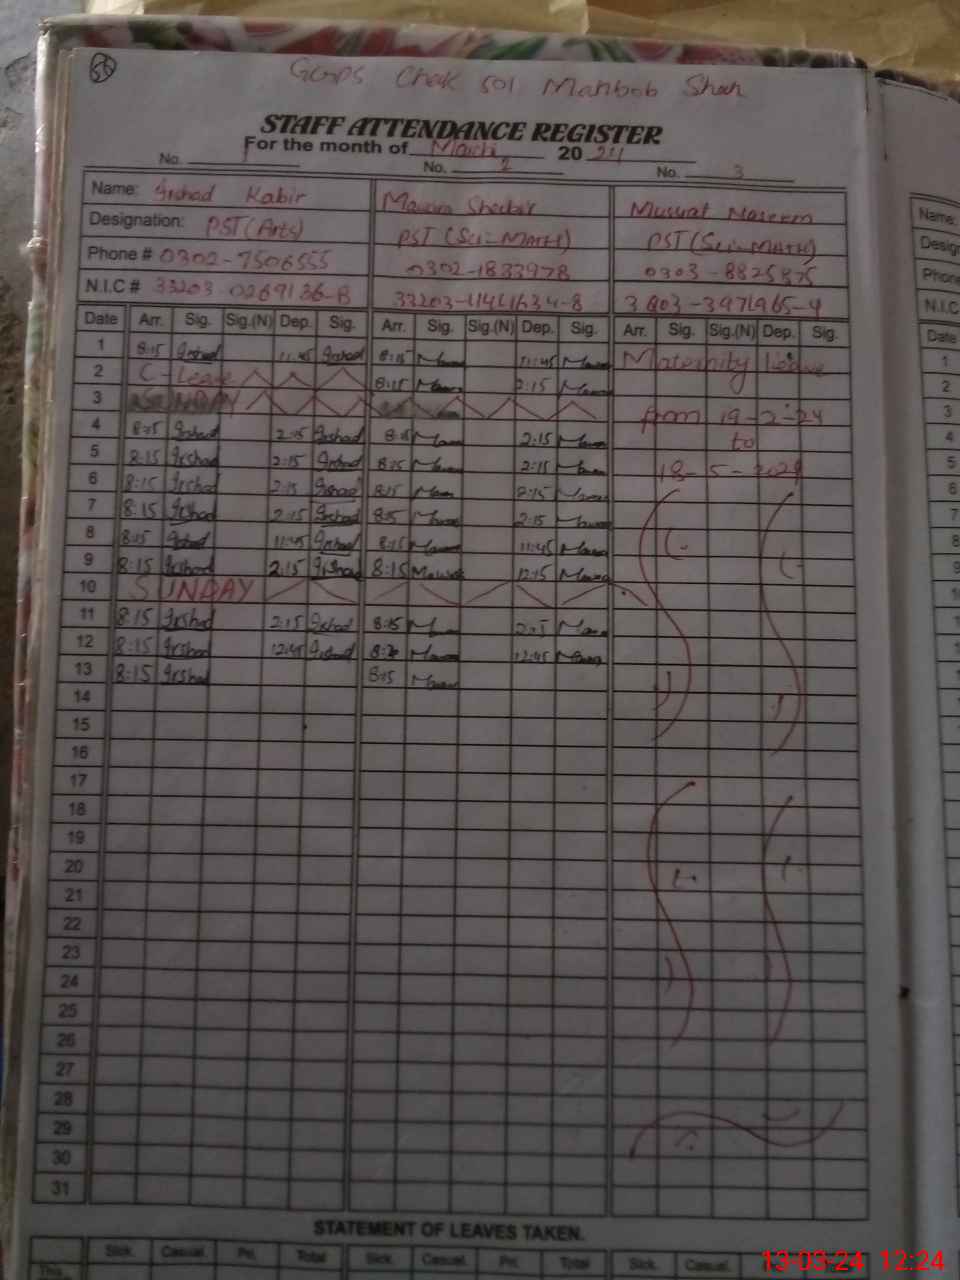 56
GGPS Chak 501 Mahbob Shah
STAFF ATTENDANCE REGISTER
For the month of March 2024
No. 1 No. 2 No. 3
Name: Irshad Kabir Shabbir Naseem
Designation: PST (Arts) PST (Sci-Math) PST (Sci-MATH)
Phone # 0302-7506555 0302-1833978 0303-8825875
N.I.C # 33203-0269136-8
Date Arr. Sig. Sig.(N) Dep. Sig. Arr. Sig. Sig.(N) Dep. Sig. Arr. Sig. Sig.(N) Dep. Sig.
1 8:15 Irshad 11:45 Irshad 8:15 11:45 Maternity leave
2 C-Leave 8:15 2:15
3 SUNDAY from 19-2-24
4 8:15 Irshad 2:15 Irshad 8:15 2:15 to
5 8:15 Irshad 2:15 Irshad 8:15 2:15 18-5-2024
6 8:15 Irshad 2:15 Irshad 8:15 2:15
7 8:15 Irshad 2:15 Irshad 8:15 2:15
8 8:15 Irshad 11:45 Irshad 8:15 11:45
9 8:15 Irshad 2:15 Irshad 8:15 12:15
10 SUNDAY
11 8:15 Irshad 2:15 Irshad 8:15
12 8:15 Irshad 12:45 Irshad 12:45
13 8:15 Irshad 8:15
14
15
16
17
18
19
20
21
22
23
24
25
26
27
28
29
30
31
STATEMENT OF LEAVES TAKEN.
Sick. Casual. Pri. Total Sick. Casual. Pri. Total Sick. Casual.
This
13-03-24 12:24
Name:
Phone
N.I.C
Date
1
2
3
4
5
6
7
8
9